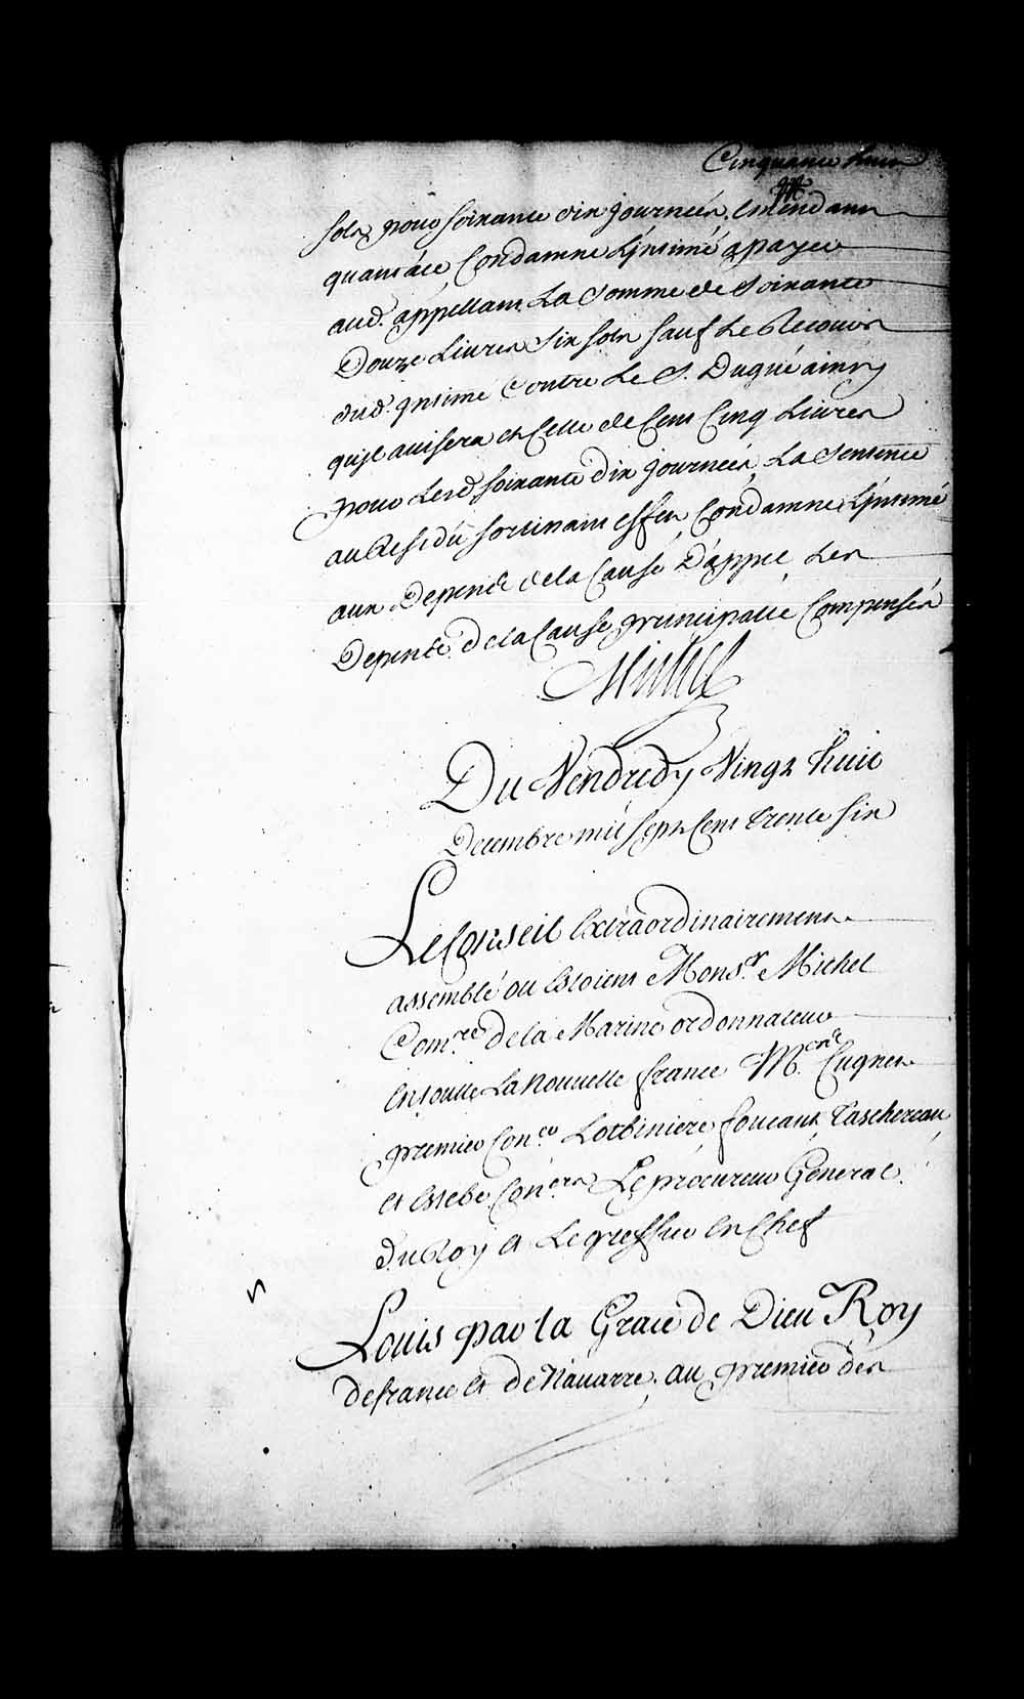 Cinquante huit
sols pour soixante dix journées, Emendant
quant à ce Condamne L'jntimé a payer
aud. appellant La Somme de Soixante
Douze Livres Six sols sauf Le Recours
dud. jntimé Contre Le S. Dugué ainsy
qu'jl avisera et Celle de Cent Cinq Livres
pour Lesd. soixante dix journées, La Sentence
au Residu sortissant effet, Condamne L'jntimé
aux Depens de la Cause D'appel, Les
Depens de la Cause principalle Compensés
Michel
Du Vendredy Vingt huit
Decembre mil sept Cent trente six
Le Conseil Extraordinairement
assemblé ou Estoient Mons.r Michel
Com.re de la Marine ordonnateur
En toutte La Nouvelle france M. Cugnet
premier Con.er Lotbiniere, foucault, Taschereau,
et Estebe Con.ers Le procureur General
du Roy et Le greffier En Chef
Louis par la Grace de Dieu Roy
de france et de Navarre, au premier des